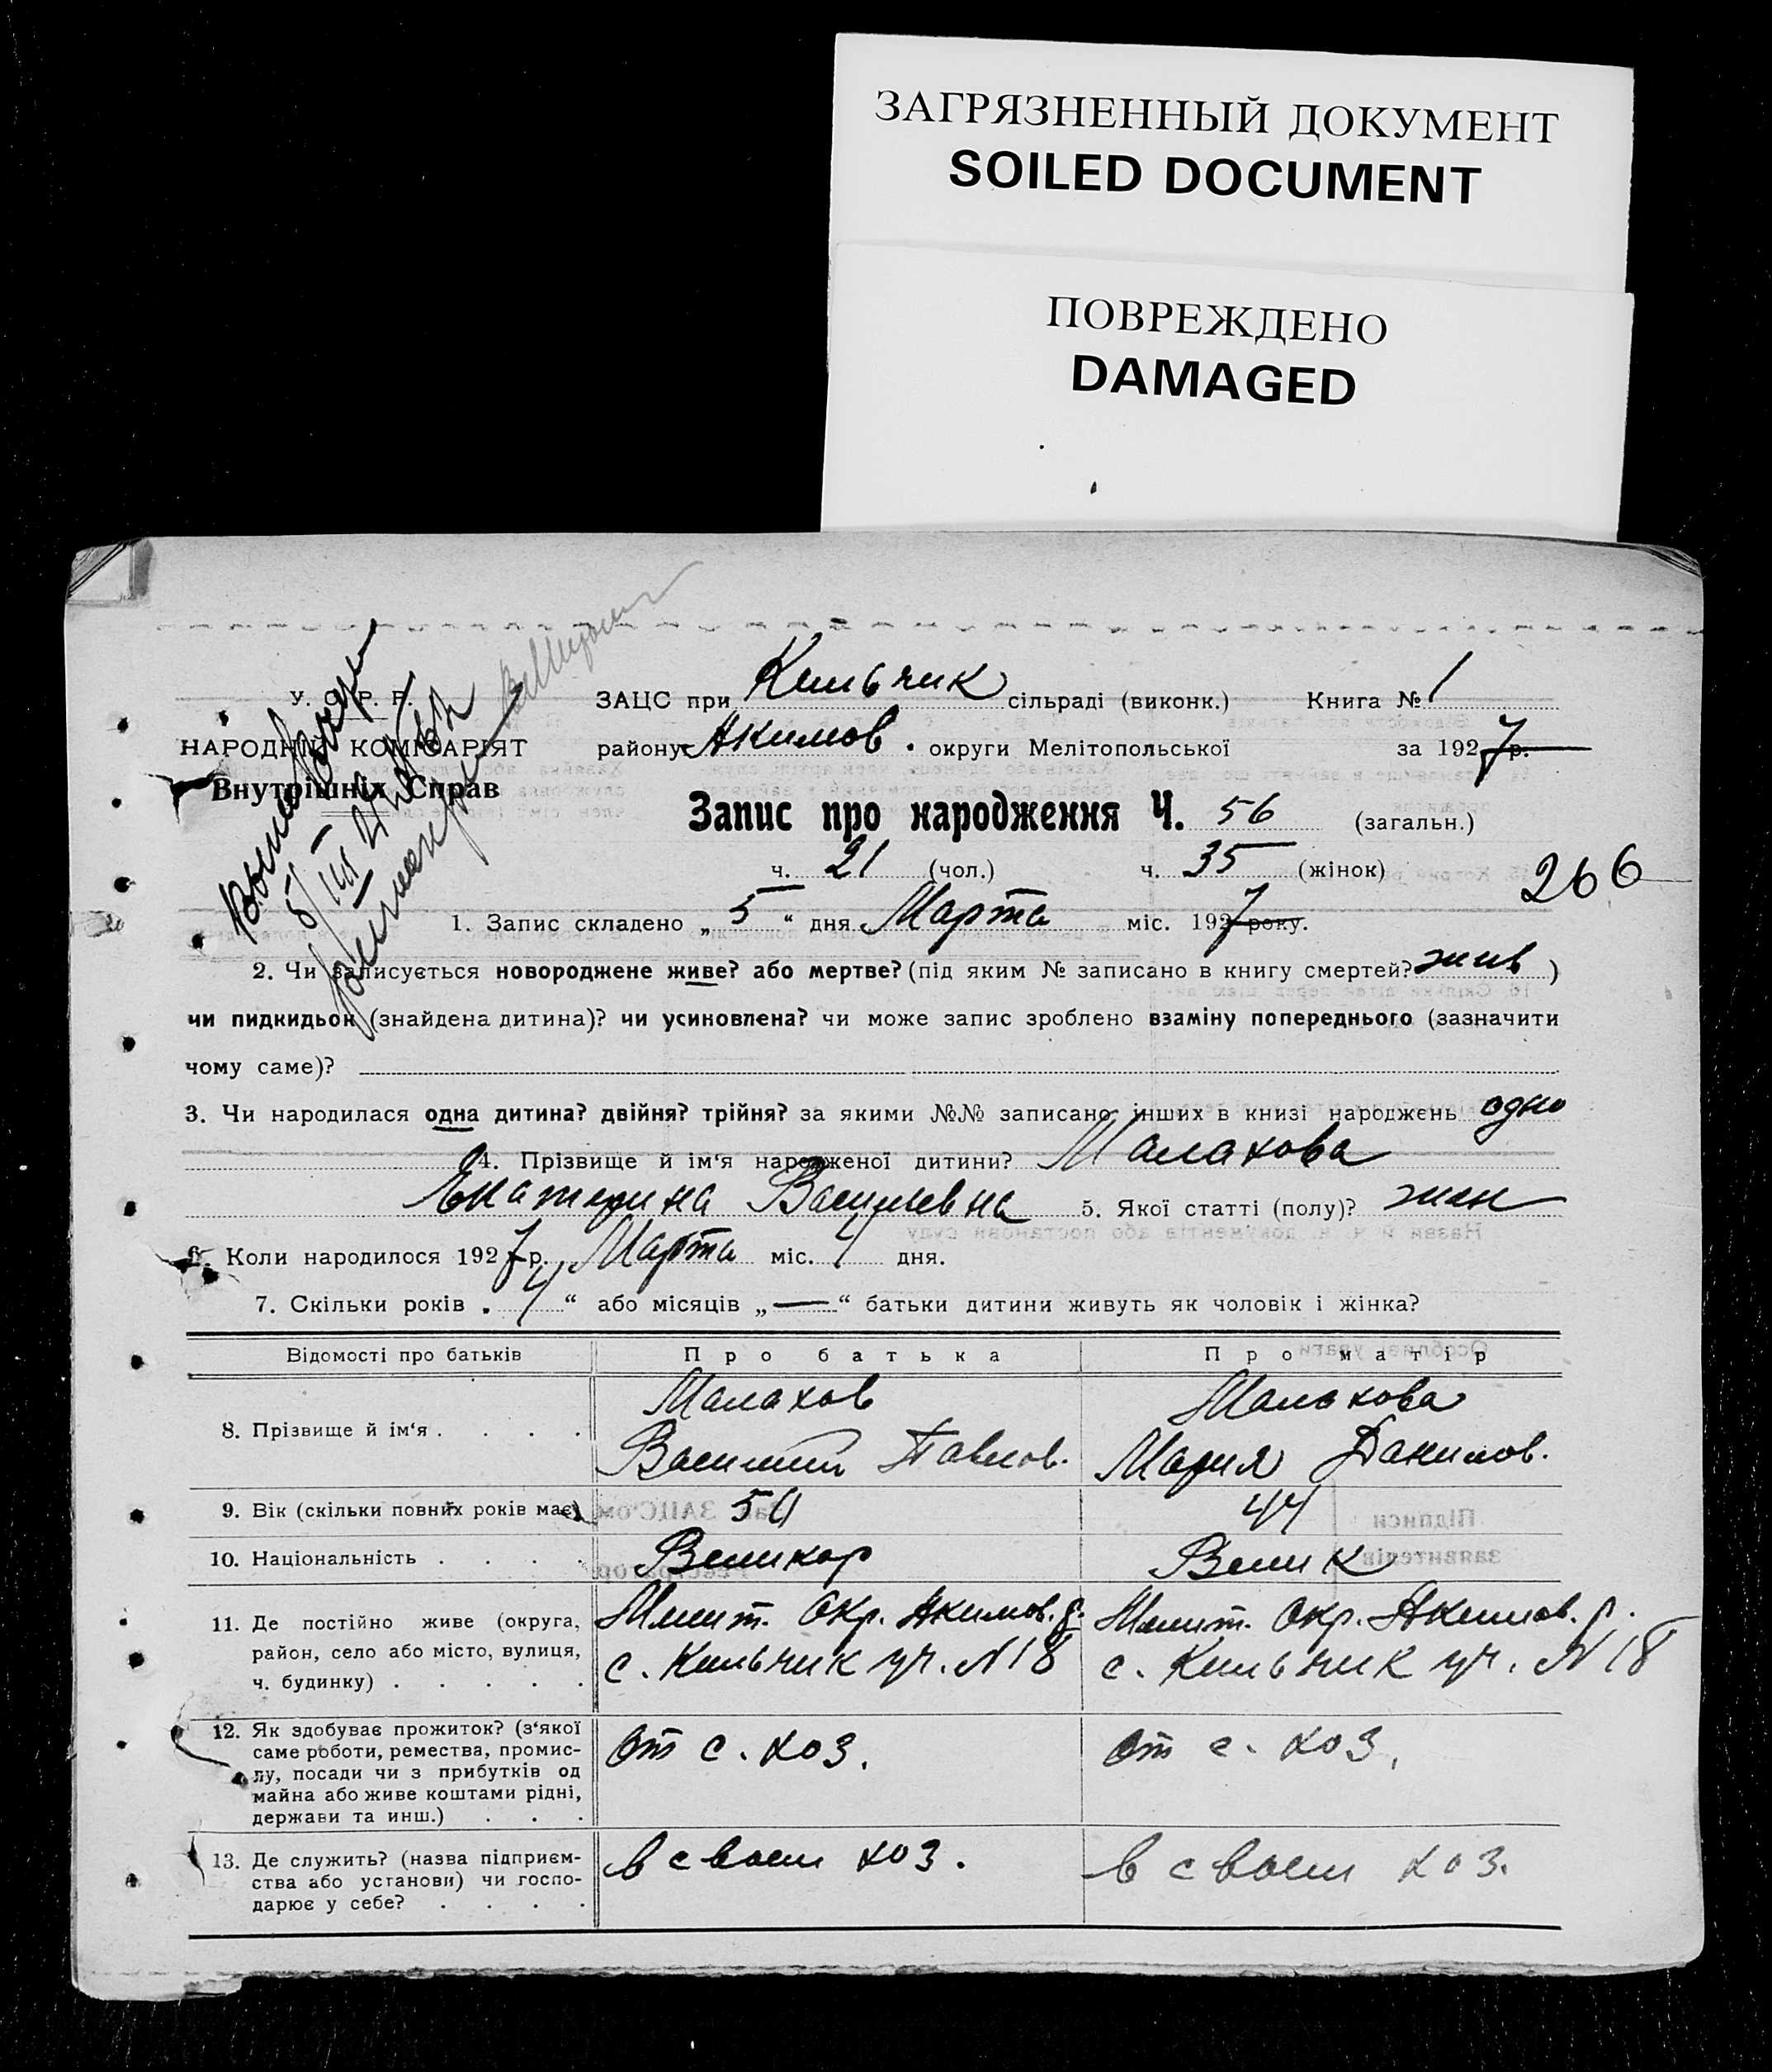 ЗАГРЯЗНЕННЫЙ ДОКУМЕНТ
SOILED DOCUMENT
ПОВРЕЖДЕНО
DAMAGED
У. С. Р. Р.
НАРОДНІЙ КОМІСАРІЯТ
Внутрішніх Справ
5/III 27
ЗАЦС при Кильчик сільраді (виконк.) Книга № 1
району Акимов. округи Мелітопольської за 1927 р.
Запис про народження Ч. 56 (загальн.)
ч. 21 (чол.) ч. 35 (жінок)
266
1. Запис складено „ 5 “ дня Марта міс. 1927 року.
2. Чи записується новороджене живе? або мертве? (під яким № записано в книгу смертей? жив )
чи пидкидьок (знайдена дитина)? чи усиновлена? чи може запис зроблено взаміну попереднього (зазначити
чому саме)?
3. Чи народилася одна дитина? двійня? трійня? за якими №№ записано інших в книзі народжень одно
4. Прізвище й ім‘я народженої дитини? Малахова
Екатерина Васильевна 5. Якої статті (полу)? жен
6. Коли народилося 1927 р. Марта міс. 4 дня.
7. Скільки років „ 4 “ або місяців „ — “ батьки дитини живуть як чоловік і жінка?
Відомості про батьків Про батька Про матір
8. Прізвище й ім‘я . . . . Малахов Малахова
Василий Павлов. Мария Данилов.
9. Вік (скільки повних років має) 50 44
10. Національність . . . . Великор Велик
11. Де постійно живе (округа, Мелит. Окр. Акимов. р. Мелит. Окр. Акимов. р.
район, село або місто, вулиця, с. Кильчик уч. № 18 с. Кильчик уч. № 18
ч. будинку) . . . . .
12. Як здобуває прожиток? (з‘якої От с. хоз. От с. хоз.
саме роботи, ремества, промис-
лу, посади чи з прибутків од
майна або живе коштами рідні,
держави та инш.) . . .
13. Де служить? (назва підприєм- в своем хоз. в своем хоз.
ства або установи) чи госпо-
дарює у себе? . . . .